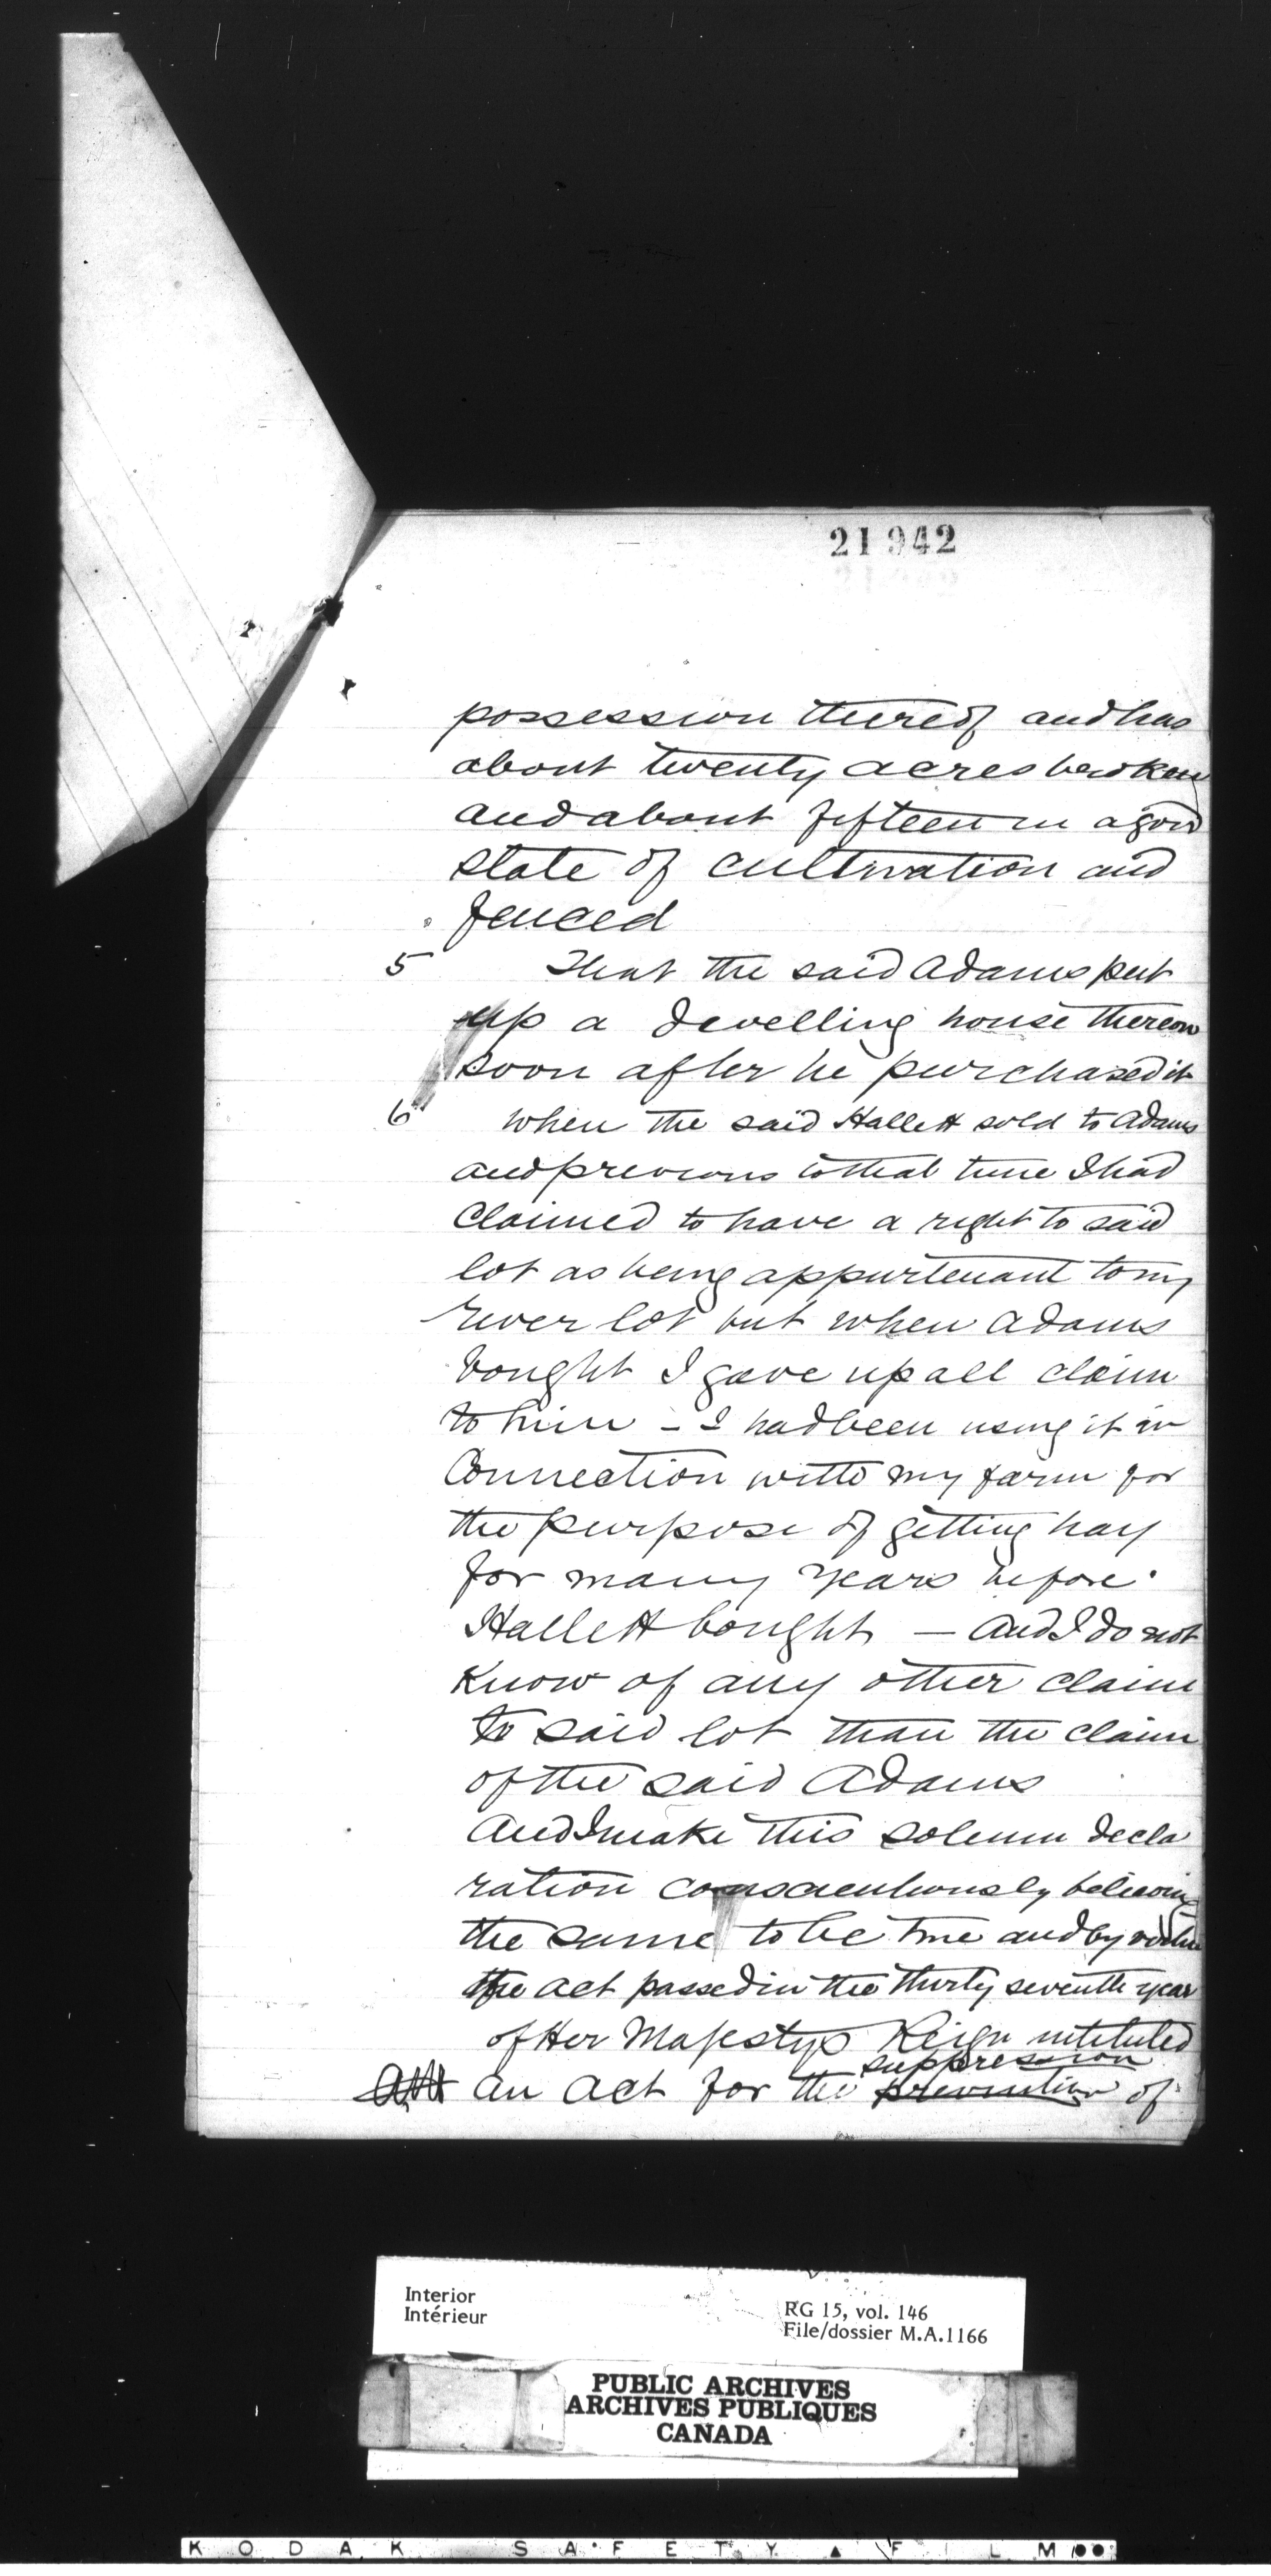 21942
possession thereof and has
about twenty acres broken
and about fifteen in a good
state of cultivation and
fenced
5 That the said Adams put
up a dwelling house thereon
soon after he purchased it
6 When the said Hallett sold to Adams
and previous to that time I had
claimed to have a right to said
lot as being appurtenant to my
river lot but when Adams
bought I gave up all claim
to him - I had been using it in
Connection with my farm for
the purpose of getting hay
for many years before
Hallett bought — And I do not
Know of any other claim
to said lot than the claim
of the said Adams
And I make this solemn decla
ration conscientiously believing
the same to be true and by virtue
of the act passed in the thirty seventh year
of Her Majestys Reign intituled
suppression
an act for the prevention of
Interior
Intérieur
RG 15, vol. 146
File/dossier M.A.1166
PUBLIC ARCHIVES
ARCHIVES PUBLIQUES
CANADA
KODAK SAFETY ▲ FILM